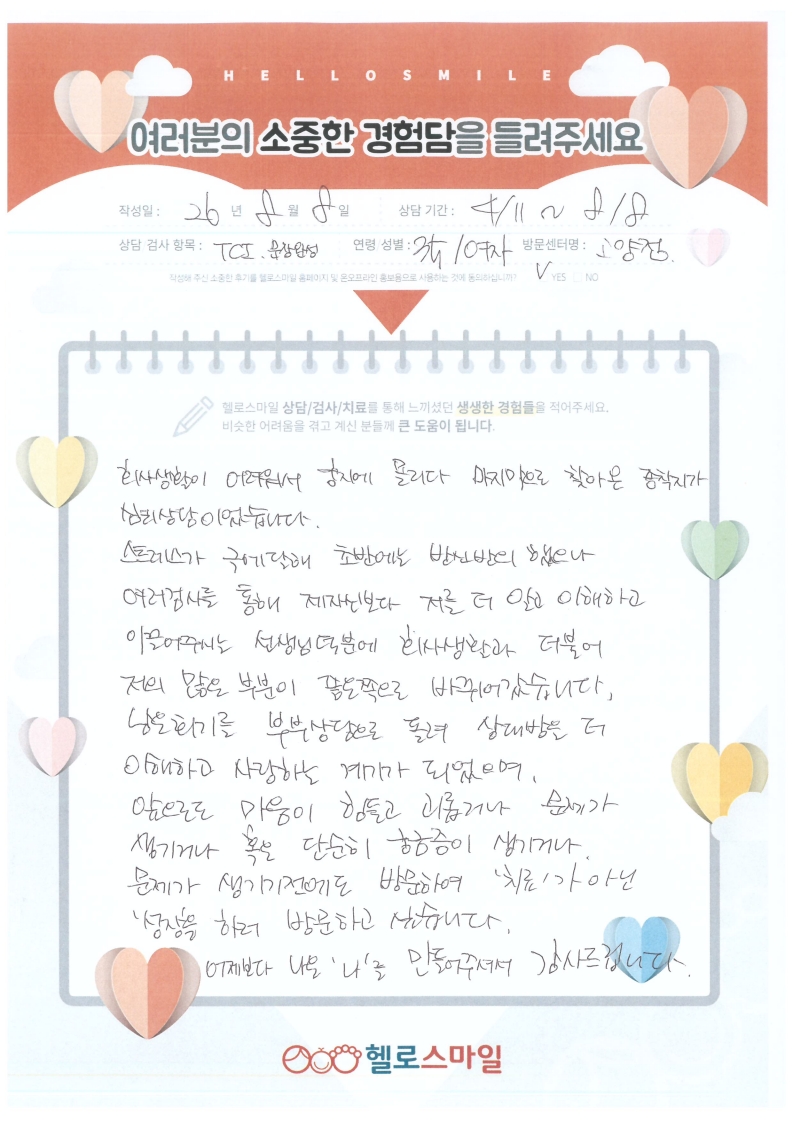 HELLOSMILE
여러분의 소중한 경험담을 들려주세요
작성일 : 26 년 8 월 8 일 상담 기간 : 4/11 ~ 8/8
상담 검사 항목 : TCI. 문장완성 연령 성별 : /여자 방문센터명 : 고양점.
작성해 주신 소중한 후기를 헬로스마일 홈페이지 및 온오프라인 홍보용으로 사용하는 것에 동의하십니까? V YES NO
헬로스마일 상담/검사/치료를 통해 느끼셨던 생생한 경험들을 적어주세요.
비슷한 어려움을 겪고 계신 분들께 큰 도움이 됩니다.
회사생활이 어려워서 궁지에 몰리다 마지막으로 찾아온 종착지가
심리상담이었습니다.
스트레스가 극에달해 초반에는 반신반의 했으나
여러검사를 통해 제자신보다 저를 더 알고 이해하고
이끌어주시는 선생님덕분에 회사생활과 더불어
저의 많은 부분이 좋은쪽으로 바뀌어갔습니다,
남은회기를 부부상담으로 돌려 상대방을 더
이해하고 사랑하는 계기가 되었으며,
앞으로도 마음이 힘들고 괴롭거나 문제가
생기거나 혹은 단순히 궁금증이 생기거나,
문제가 생기기전에도 방문하여 '치료'가 아닌
'성장'을 하러 방문하고 싶습니다.
어제보다 나은 '나'를 만들어주셔서 감사드립니다.
헬로스마일